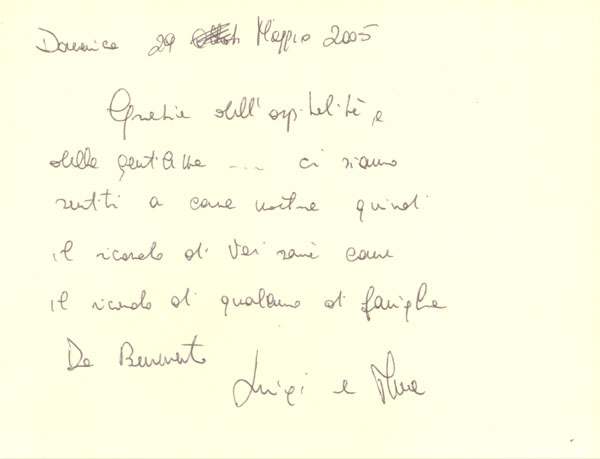 Domenica 29 Maggio 2005
Grazie dell'ospitalità e
della gentilezza .... ci siamo
sentiti a casa nostra quindi
il ricordo di Voi sarà come
il ricordo di qualcuno di famiglia
Da Benevento
Luigi e